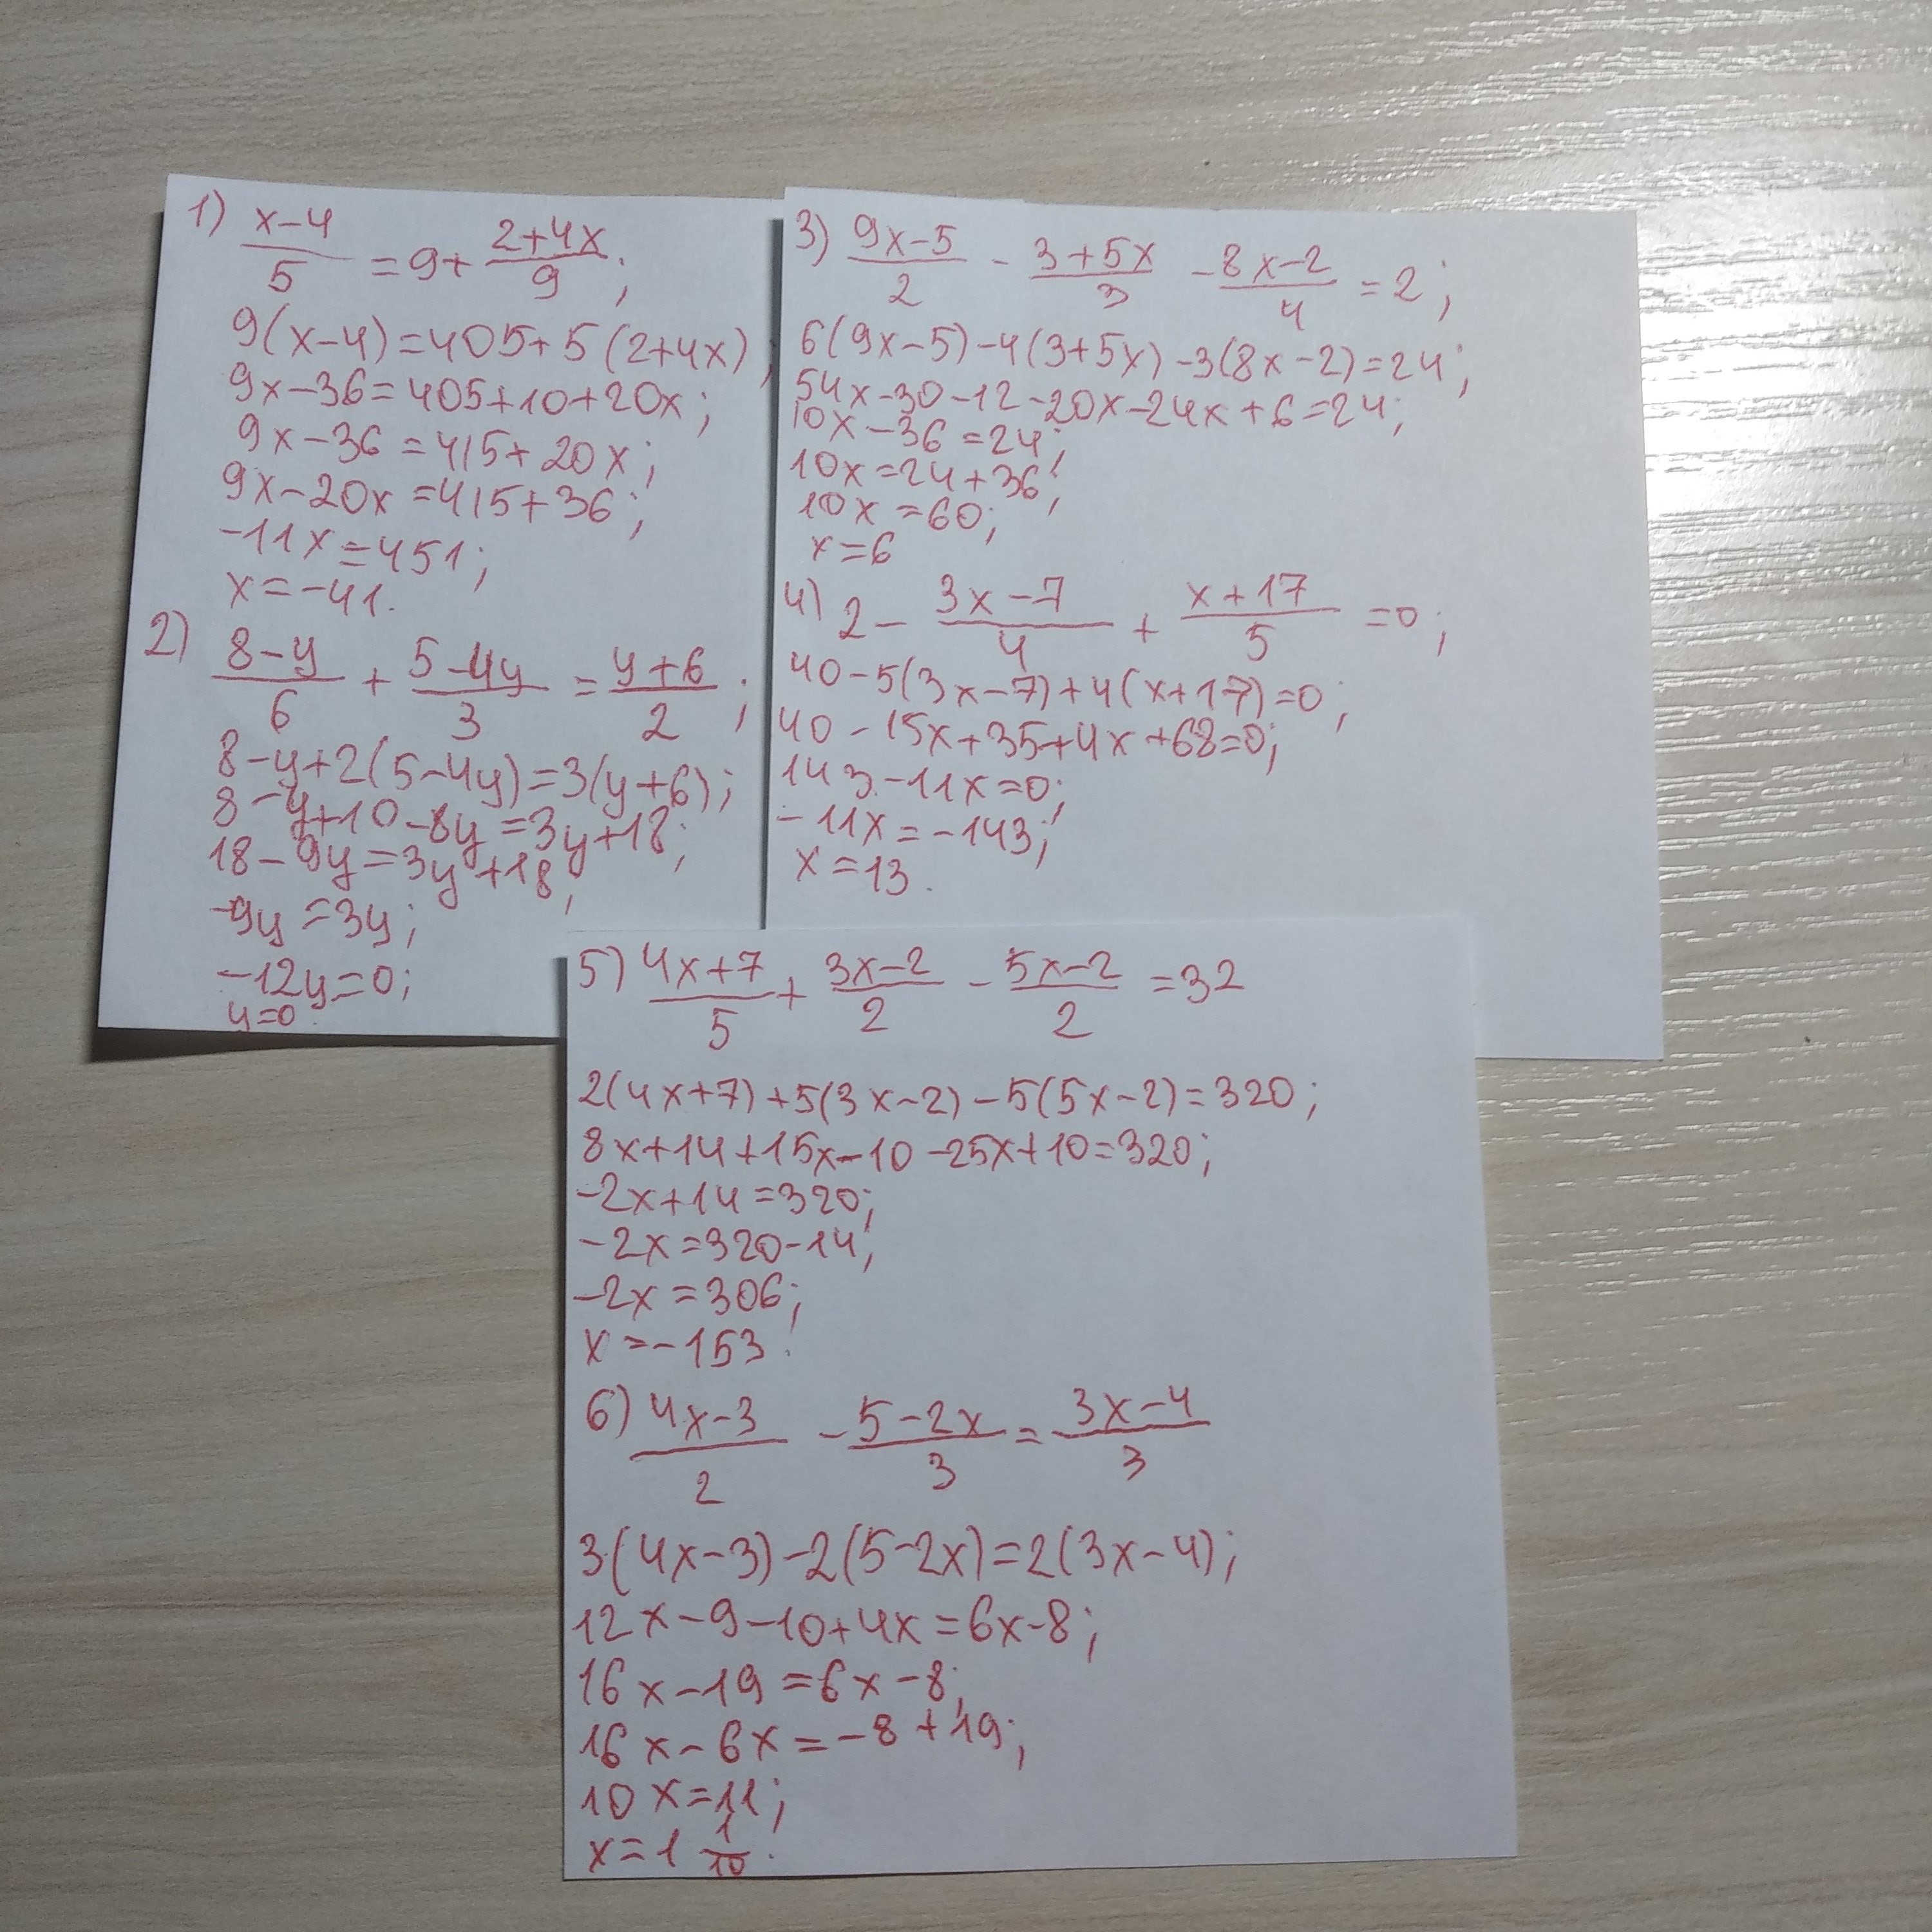 1) (x-4)/5 = 9 + (2+4x)/9;
9(x-4)=405+5(2+4x);
9x-36=405+10+20x;
9x-36=415+20x;
9x-20x=415+36;
-11x=451;
x=-41.
2) (8-y)/6 + (5-4y)/3 = (y+6)/2;
8-y+2(5-4y)=3(y+6);
8-y+10-8y=3y+18;
18-9y=3y+18;
-9y=3y;
-12y=0;
y=0.
3) (9x-5)/2 - (3+5x)/3 - (8x-2)/4 = 2;
6(9x-5)-4(3+5x)-3(8x-2)=24;
54x-30-12-20x-24x+6=24;
10x-36=24;
10x=24+36;
10x=60;
x=6
4) 2 - (3x-7)/4 + (x+17)/5 = 0;
40-5(3x-7)+4(x+17)=0;
40-15x+35+4x+68=0;
143-11x=0;
-11x=-143;
x=13.
5) (4x+7)/5 + (3x-2)/2 - (5x-2)/2 = 32
2(4x+7)+5(3x-2)-5(5x-2)=320;
8x+14+15x-10-25x+10=320;
-2x+14=320;
-2x=320-14;
-2x=306;
x=-153.
6) (4x-3)/2 - (5-2x)/3 = (3x-4)/3
3(4x-3)-2(5-2x)=2(3x-4);
12x-9-10+4x=6x-8;
16x-19=6x-8;
16x-6x=-8+19;
10x=11;
x=1 1/10.